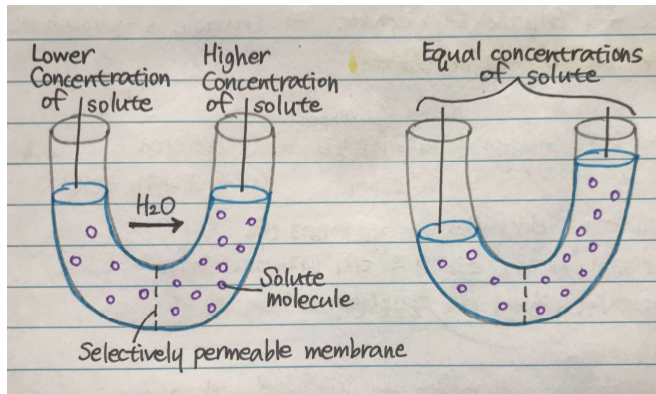 Lower
Concentration
of solute
Higher
Concentration
of solute
Equal concentrations
of solute
H2O
Solute
molecule
Selectively permeable membrane